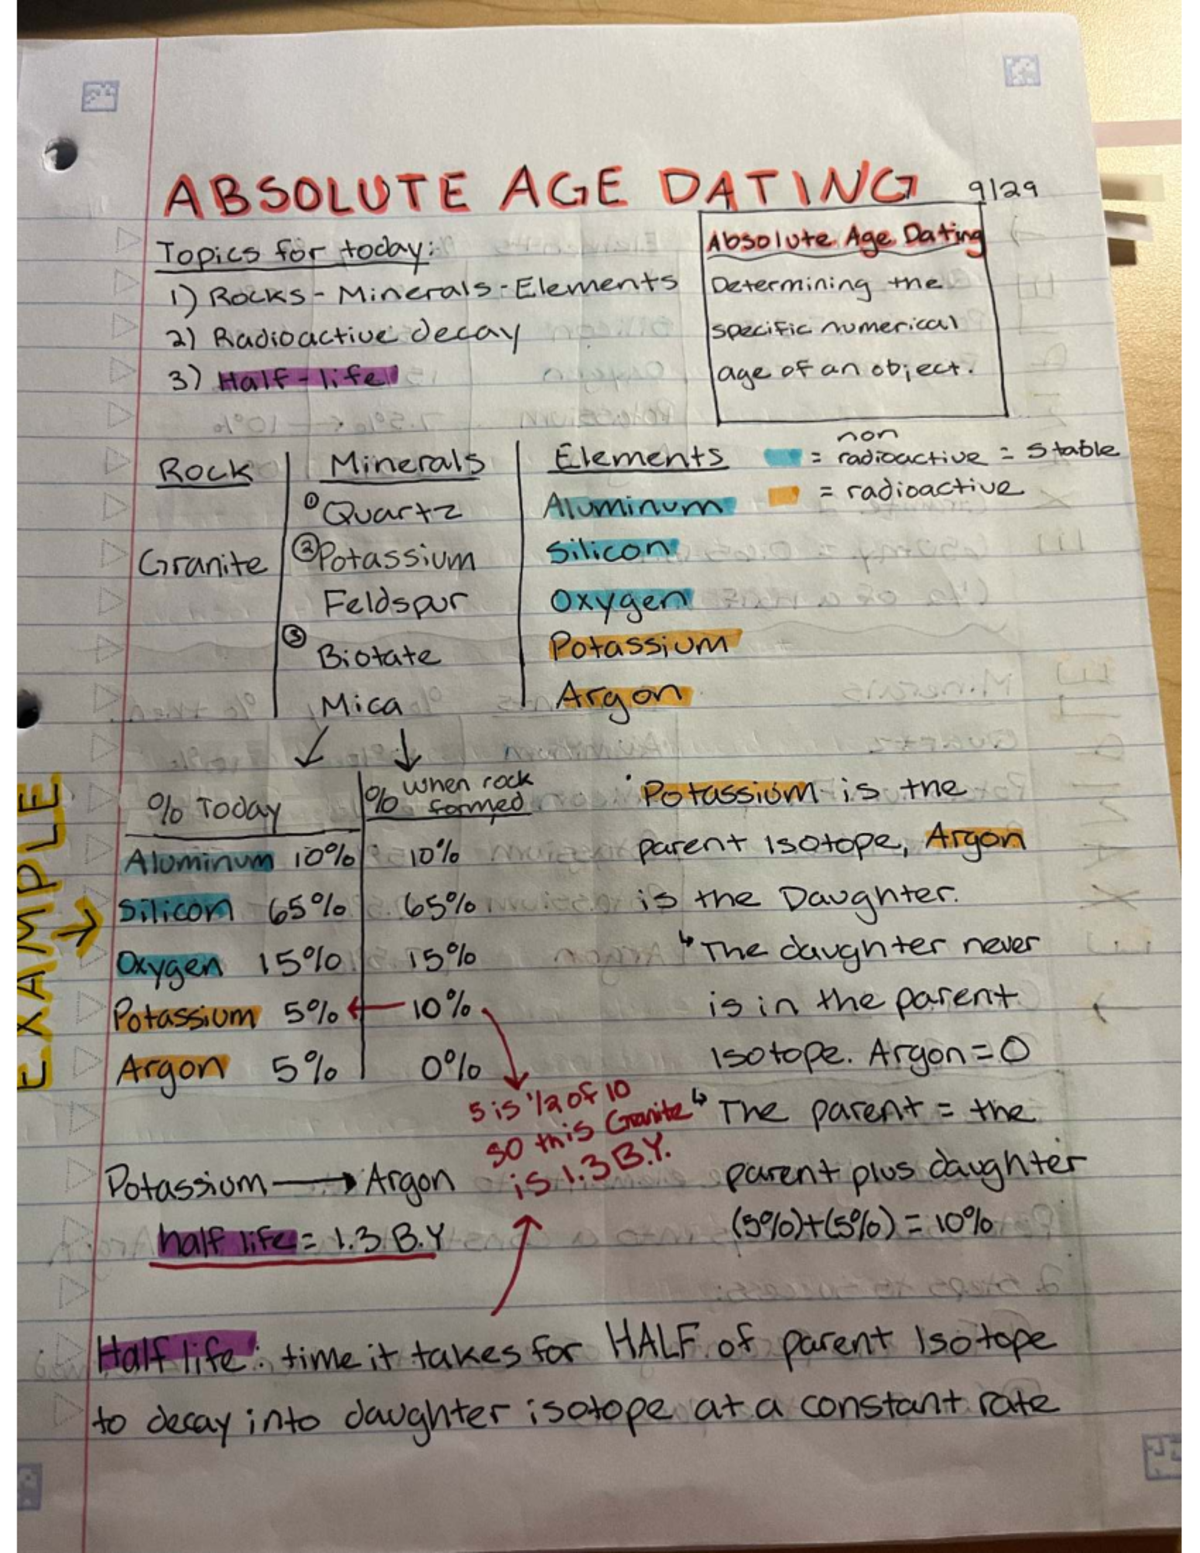 ABSOLUTE AGE DATING 9/29
Topics for today:
1) Rocks - Minerals - Elements
2) Radioactive decay
3) Half-life
Absolute Age Dating
Determining the
specific numerical
age of an object.
Rock | Minerals | Elements
non
= radioactive = stable
= radioactive
① Quartz
Aluminum
Granite
② Potassium
Silicon
Feldspur
Oxygen
③
Biotate
Potassium
Mica
Argon
EXAMPLE
% Today | % when rock
formed
Aluminum 10% 10%
Silicon 65% 65%
Oxygen 15% 15%
Potassium 5% ← 10%
Argon 5% 0%
5 is 1/2 of 10
so this Granite
is 1.3 B.Y.
Potassium → Argon
half life = 1.3 B.Y
Potassium is the
parent isotope, Argon
is the Daughter.
↳ The daughter never
is in the parent
isotope. Argon = 0
↳ The parent = the
parent plus daughter
(5%)+(5%) = 10%
Half life: time it takes for HALF of parent Isotope
to decay into daughter isotope at a constant rate